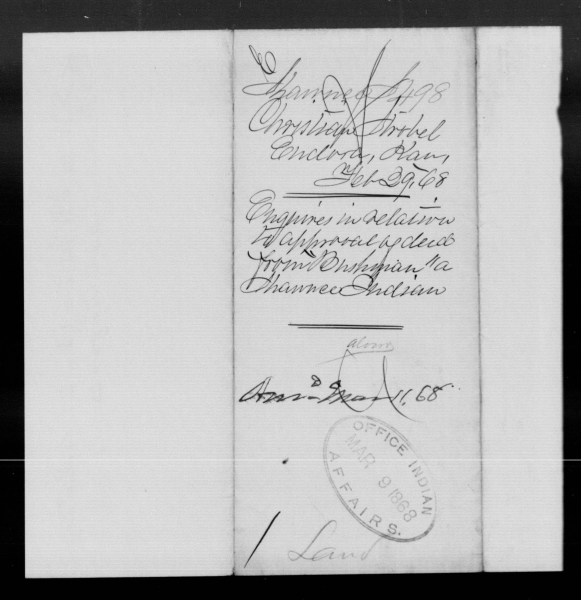 Shawnee S498
Christian Strobel
Eudora, Kan,
Feb 29, 68
Enquires in relation
to approval of deed
from "Bushman" a
Shawnee Indian
Ansd Mar 11, 68
OFFICE INDIAN
MAR 9 1868
AFFAIRS.
Land